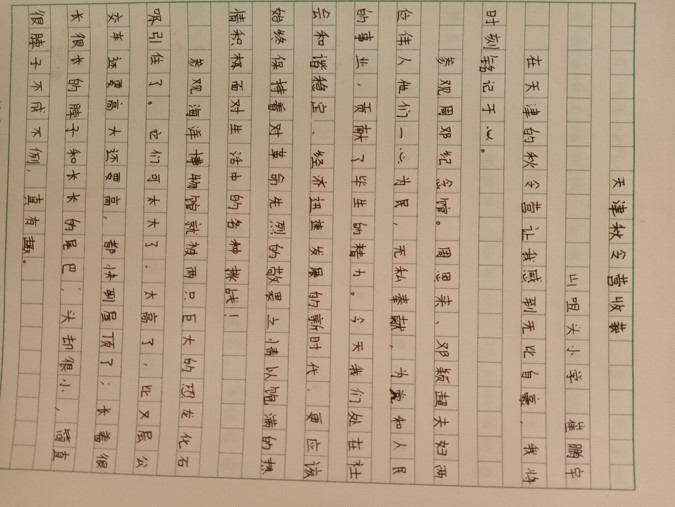 天津秋令营收获
山咀头小学 崔鹏宇
在天津的秋令营让我感到无比自豪，我将
时刻铭记于心。
参观周邓纪念馆。周恩来、邓颖超夫妇两
位伟人他们一心为民，无私奉献，为党和人民
的事业，贡献了毕生的精力。今天我们处在社
会和谐稳定、经济迅速发展的新时代，更应该
始终保持着对革命先烈的敬畏之情以饱满的热
情积极面对生活中的各种挑战！
参观海洋博物馆就被两只巨大的恐龙化石
吸引住了。它们可太大了，太高了，比双层公
交车还要高大还要高，都快到屋顶了；长着很
长很长的脖子和长长的尾巴，头却很小，简直
很脖子不成不例，真有趣。